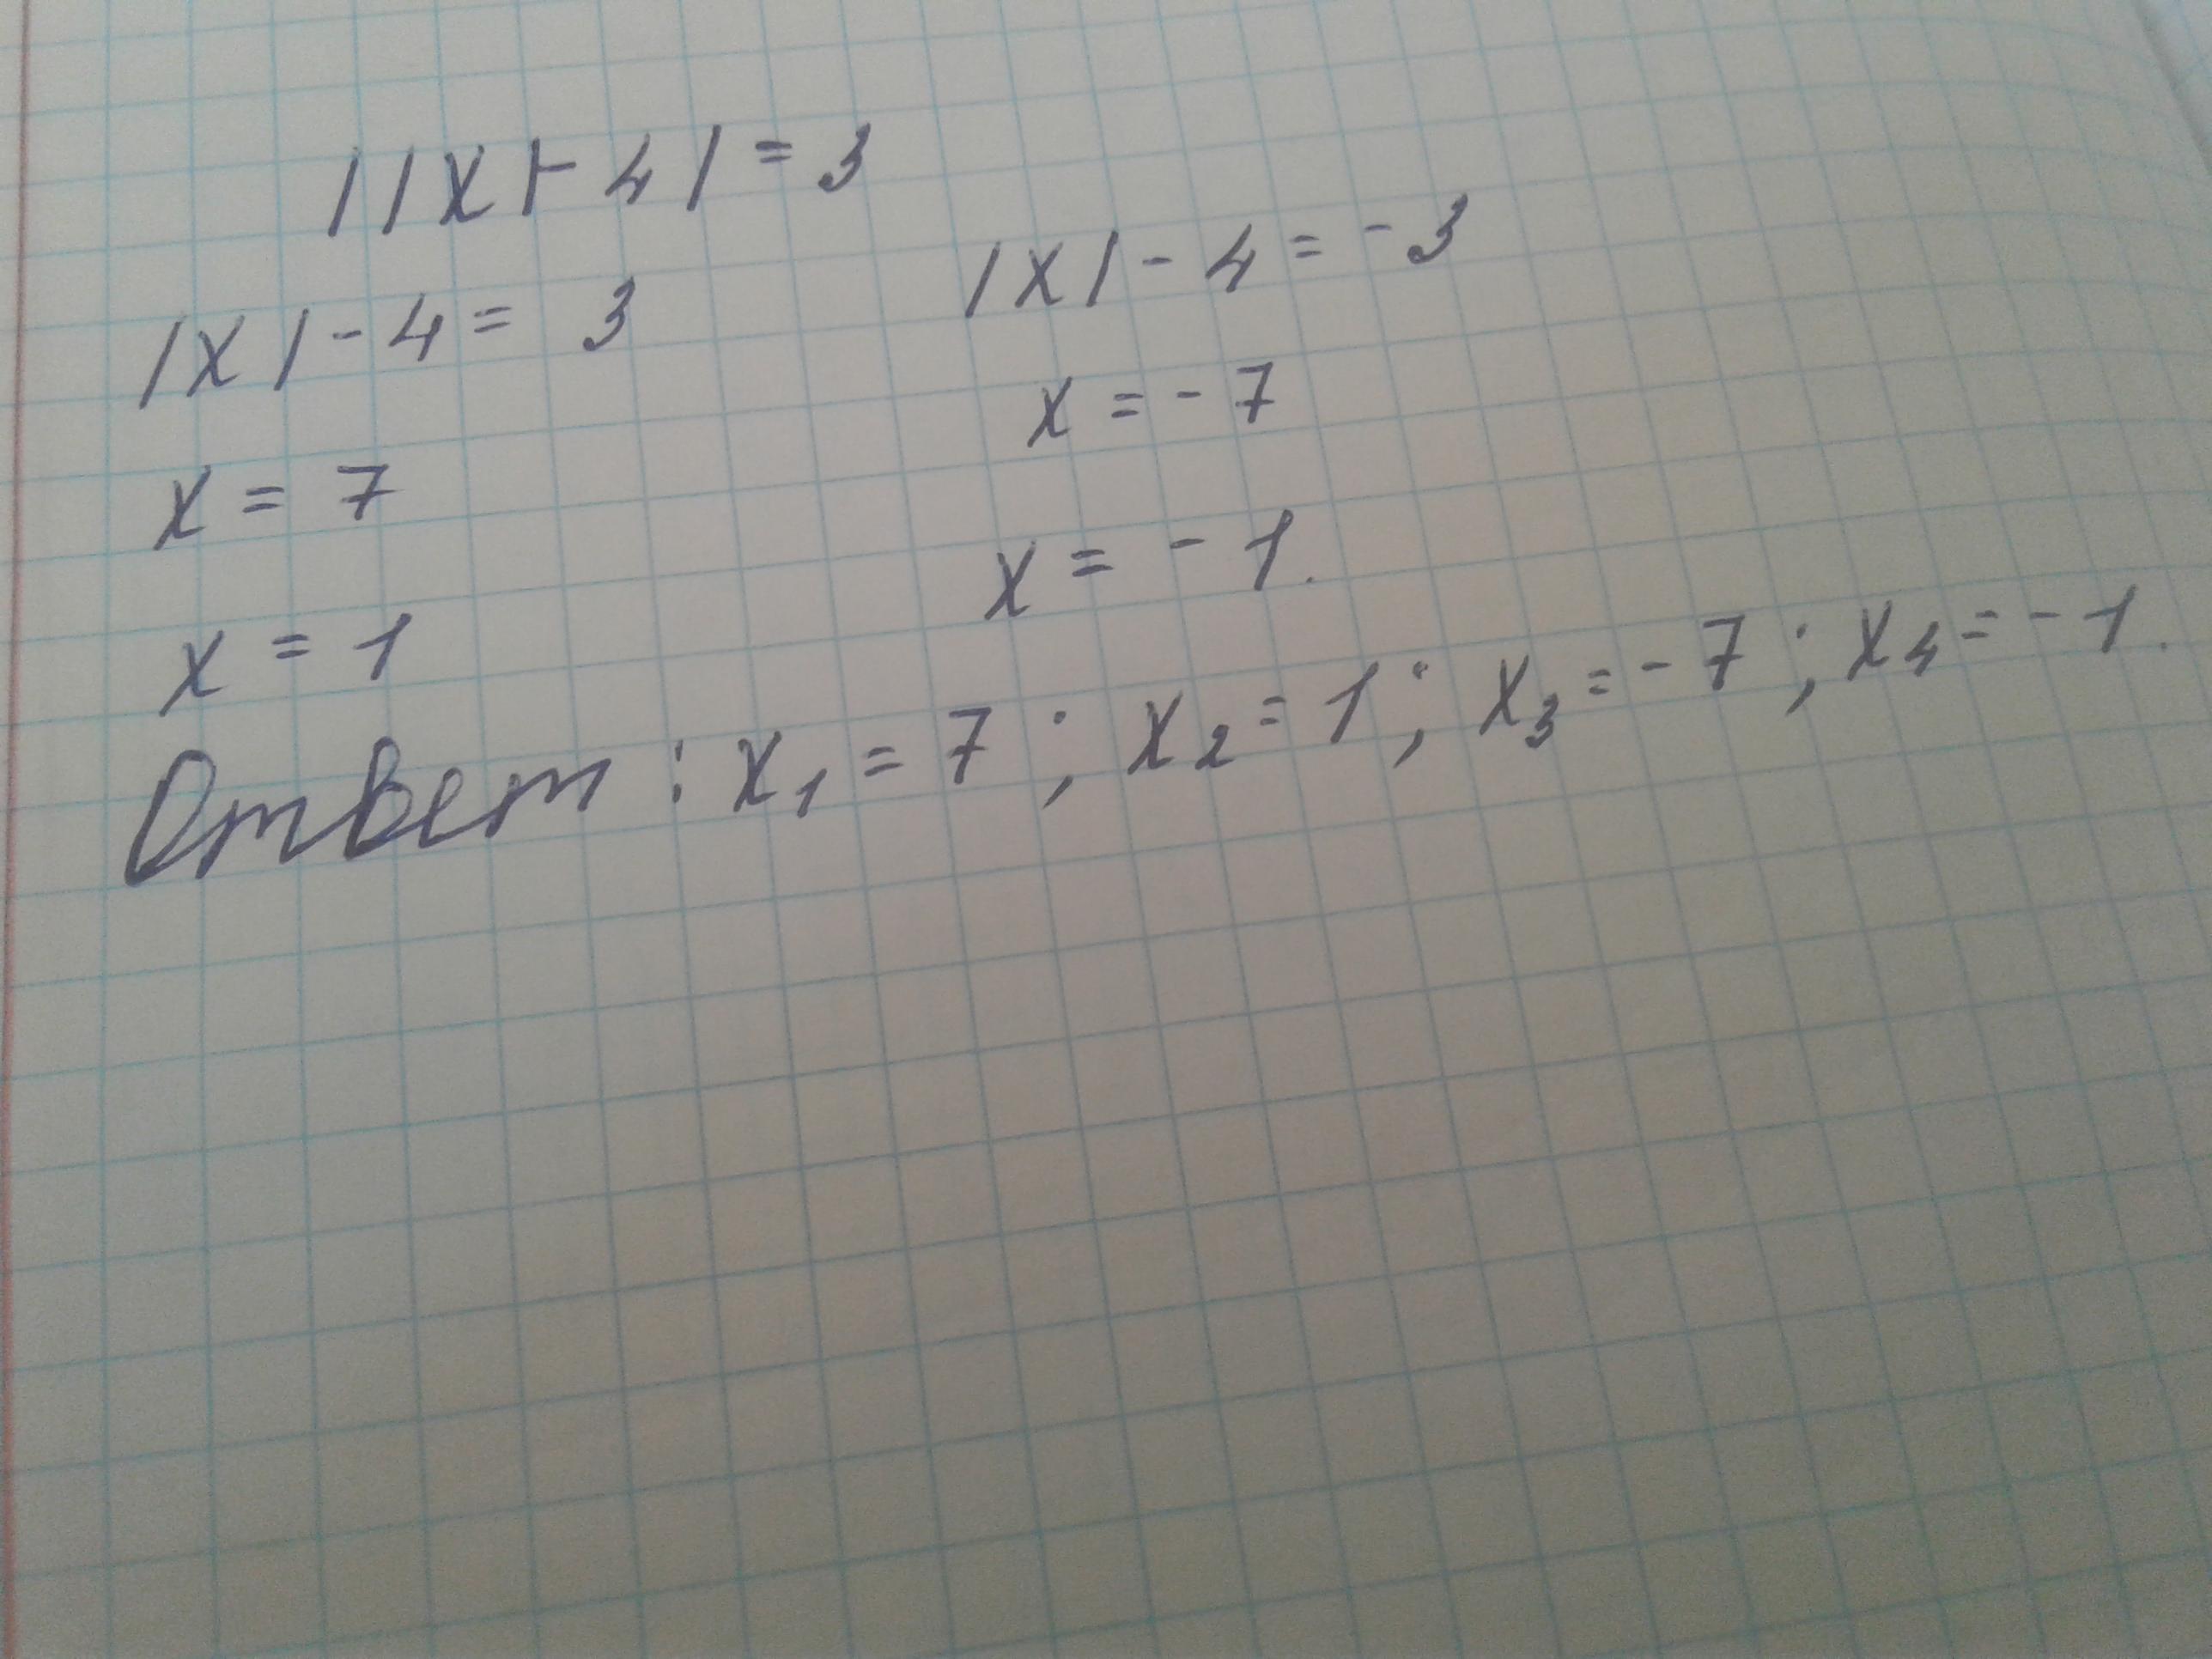 ||x|-4|=3
|x|-4=3
|x|-4=-3
x=7
x=-7
x=1
x=-1.
Ответ: x₁=7; x₂=1; x₃=-7; x₄=-1.